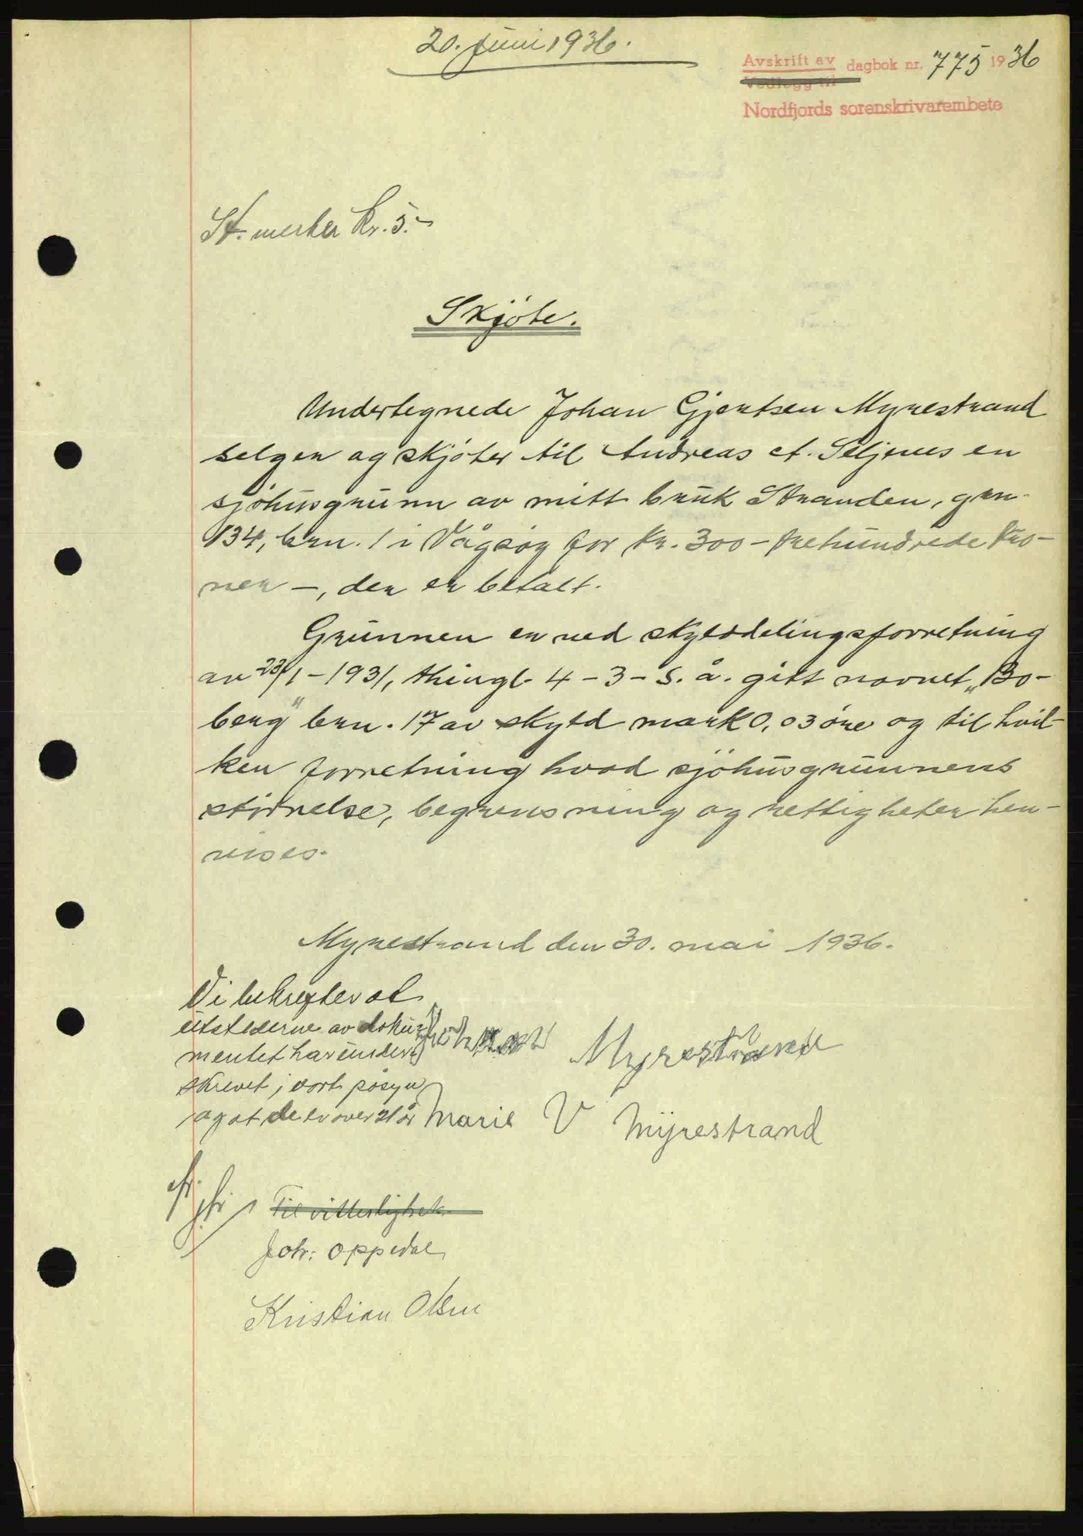 20. juni 1936.
Avskrift av dagbok nr. 775 1936
Vedlegg til
Nordfjords sorenskrivarembete
St. merker kr. 5.-
Skjöte.
Undertegnede Johan Gjertsen Myrestrand
selger og skjöter til Andreas A. Seljenes en
sjöhusgrunn av mitt bruk Stranden, grn.
134, brn. 1 i Vågsøy for kr. 300 - trehundrede kro-
ner -, der er betalt.
Grunnen er ved skylddelingsforretning
av 23/1 - 1931, thingl. 4 - 3 - s. å. gitt navnet „Bo-
berg" brn. 17 av skyld mark 0,03 øre og til hvil-
ken forretning hvad sjöhusgrunnens
störrelse, begrensning og rettigheter hen-
vises.
Myrestrand den 30. mai 1936.
Vi bekrefter at
utstederne av doku-
mentet har under-
skrevet i vort påsyn
og at de er over 21 år
Johan Myrestrand
Marie V Myrestrand
Til vitterlighet
Joh: Oppedal
Kristian Olsen